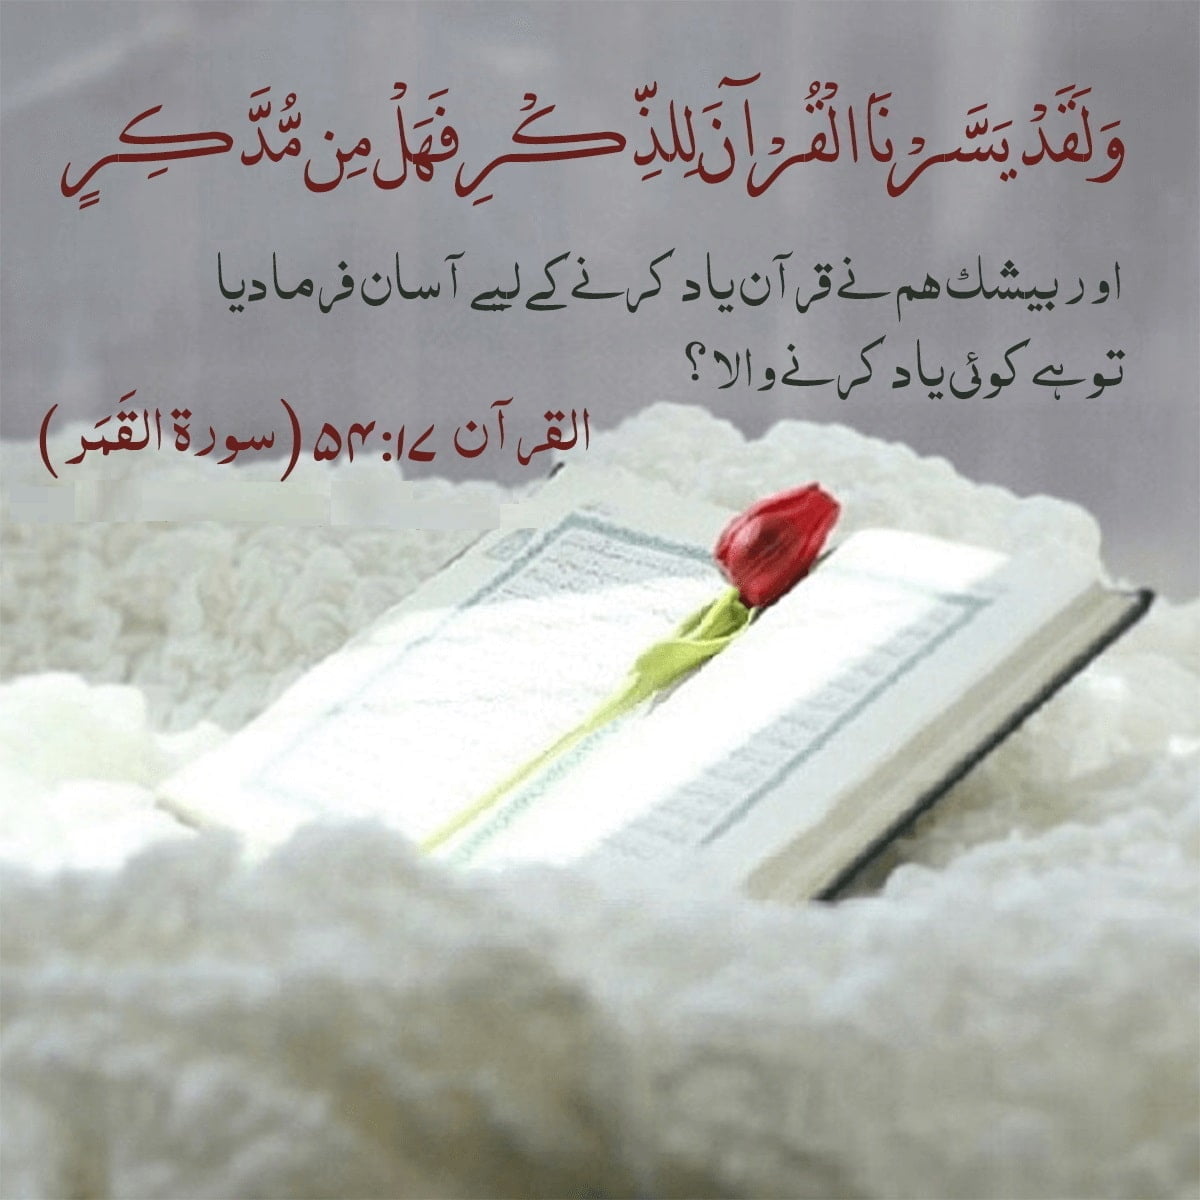 وَلَقَدْ يَسَّرْنَا الْقُرْآنَ لِلذِّكْرِ فَهَلْ مِن مُّدَّكِرٍ
اور بیشک ہم نے قرآن یاد کرنے کے لیے آسان فرما دیا
تو ہے کوئی یاد کرنے والا؟
القرآن ۵۴:۱۷ (سورۃ القَمَر)